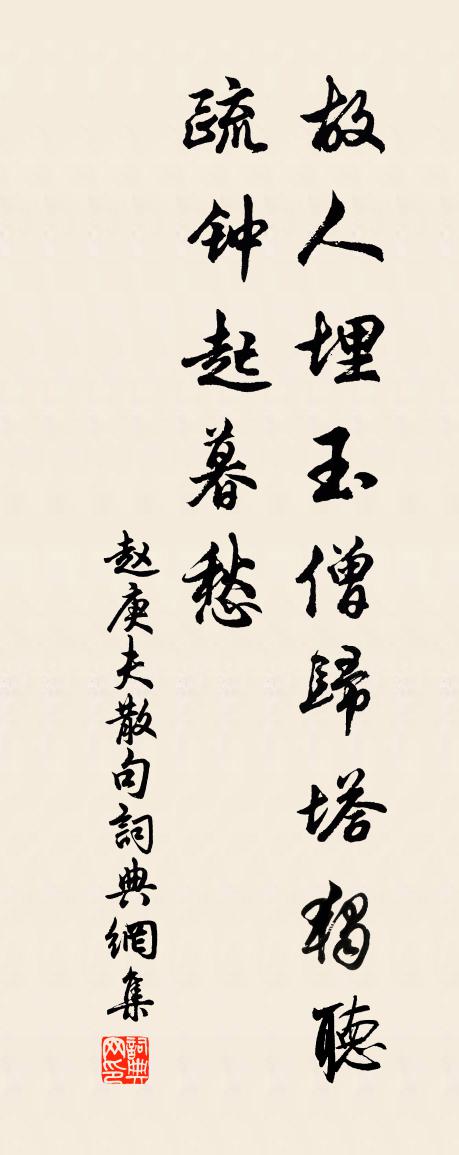 故人埋玉僧歸塔獨聽
疏钟起暮愁
赵庚夫散句詞典網集
詞典网